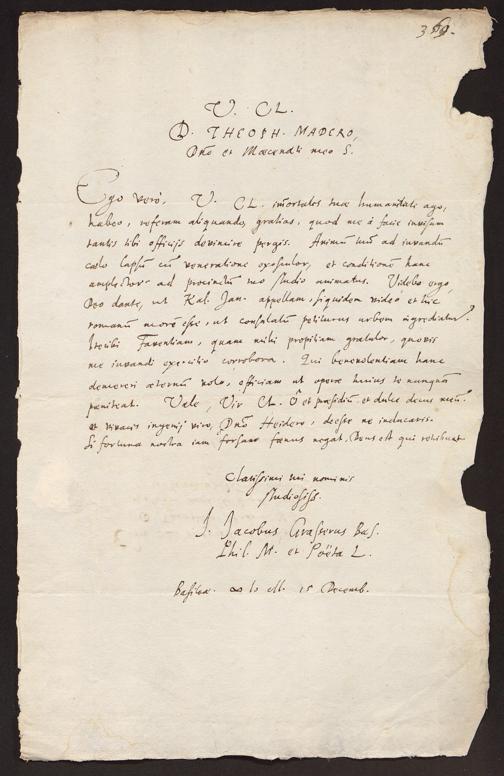 369.
V. CL.
D. THEOPH. MADERO,
Dño et Mæcenati meo S.
Ego verò, V. CL. im̃ortales tuæ humanitati ago,
habeo, referam aliquando, gratias, quod me à facie invisum
tantis tibi officijs devincire pergis. Animũ tuũ ad iuvandũ
cælo lapsũ cũ veneratione exosculor, et conditionẽ hanc
amplector ad procinctũ meo studio animatus. Videbo ergo,
Deo dante, ut Kal. Jan. appellam, siquidem video et hîc
romanũ morẽ esse, ut consulatũ petiturus urbem ingrediatur.
Heribi Faventiam, quam mihi propitiam gratulor, quovis
me iuvandi exercitio corrobora. Qui benevolentiam hanc
demereri æternũ volo, officiam ut operæ huius te nunquã
pœniteat. Vale, Vir CL. ô et præsidiũ et dulce decus meũ:
et vivacis ingenij viro, Dño Heidero, deesse ne inducaris.
Si fortuna nostra iam forsane fœnus negat, Deus est qui retribuet
Clarissimi tui nominis
studiosiss.
J. Jacobus Grasserus Bas.
Phil. M. et Poëta L.
Basileæ. 15 Decemb.